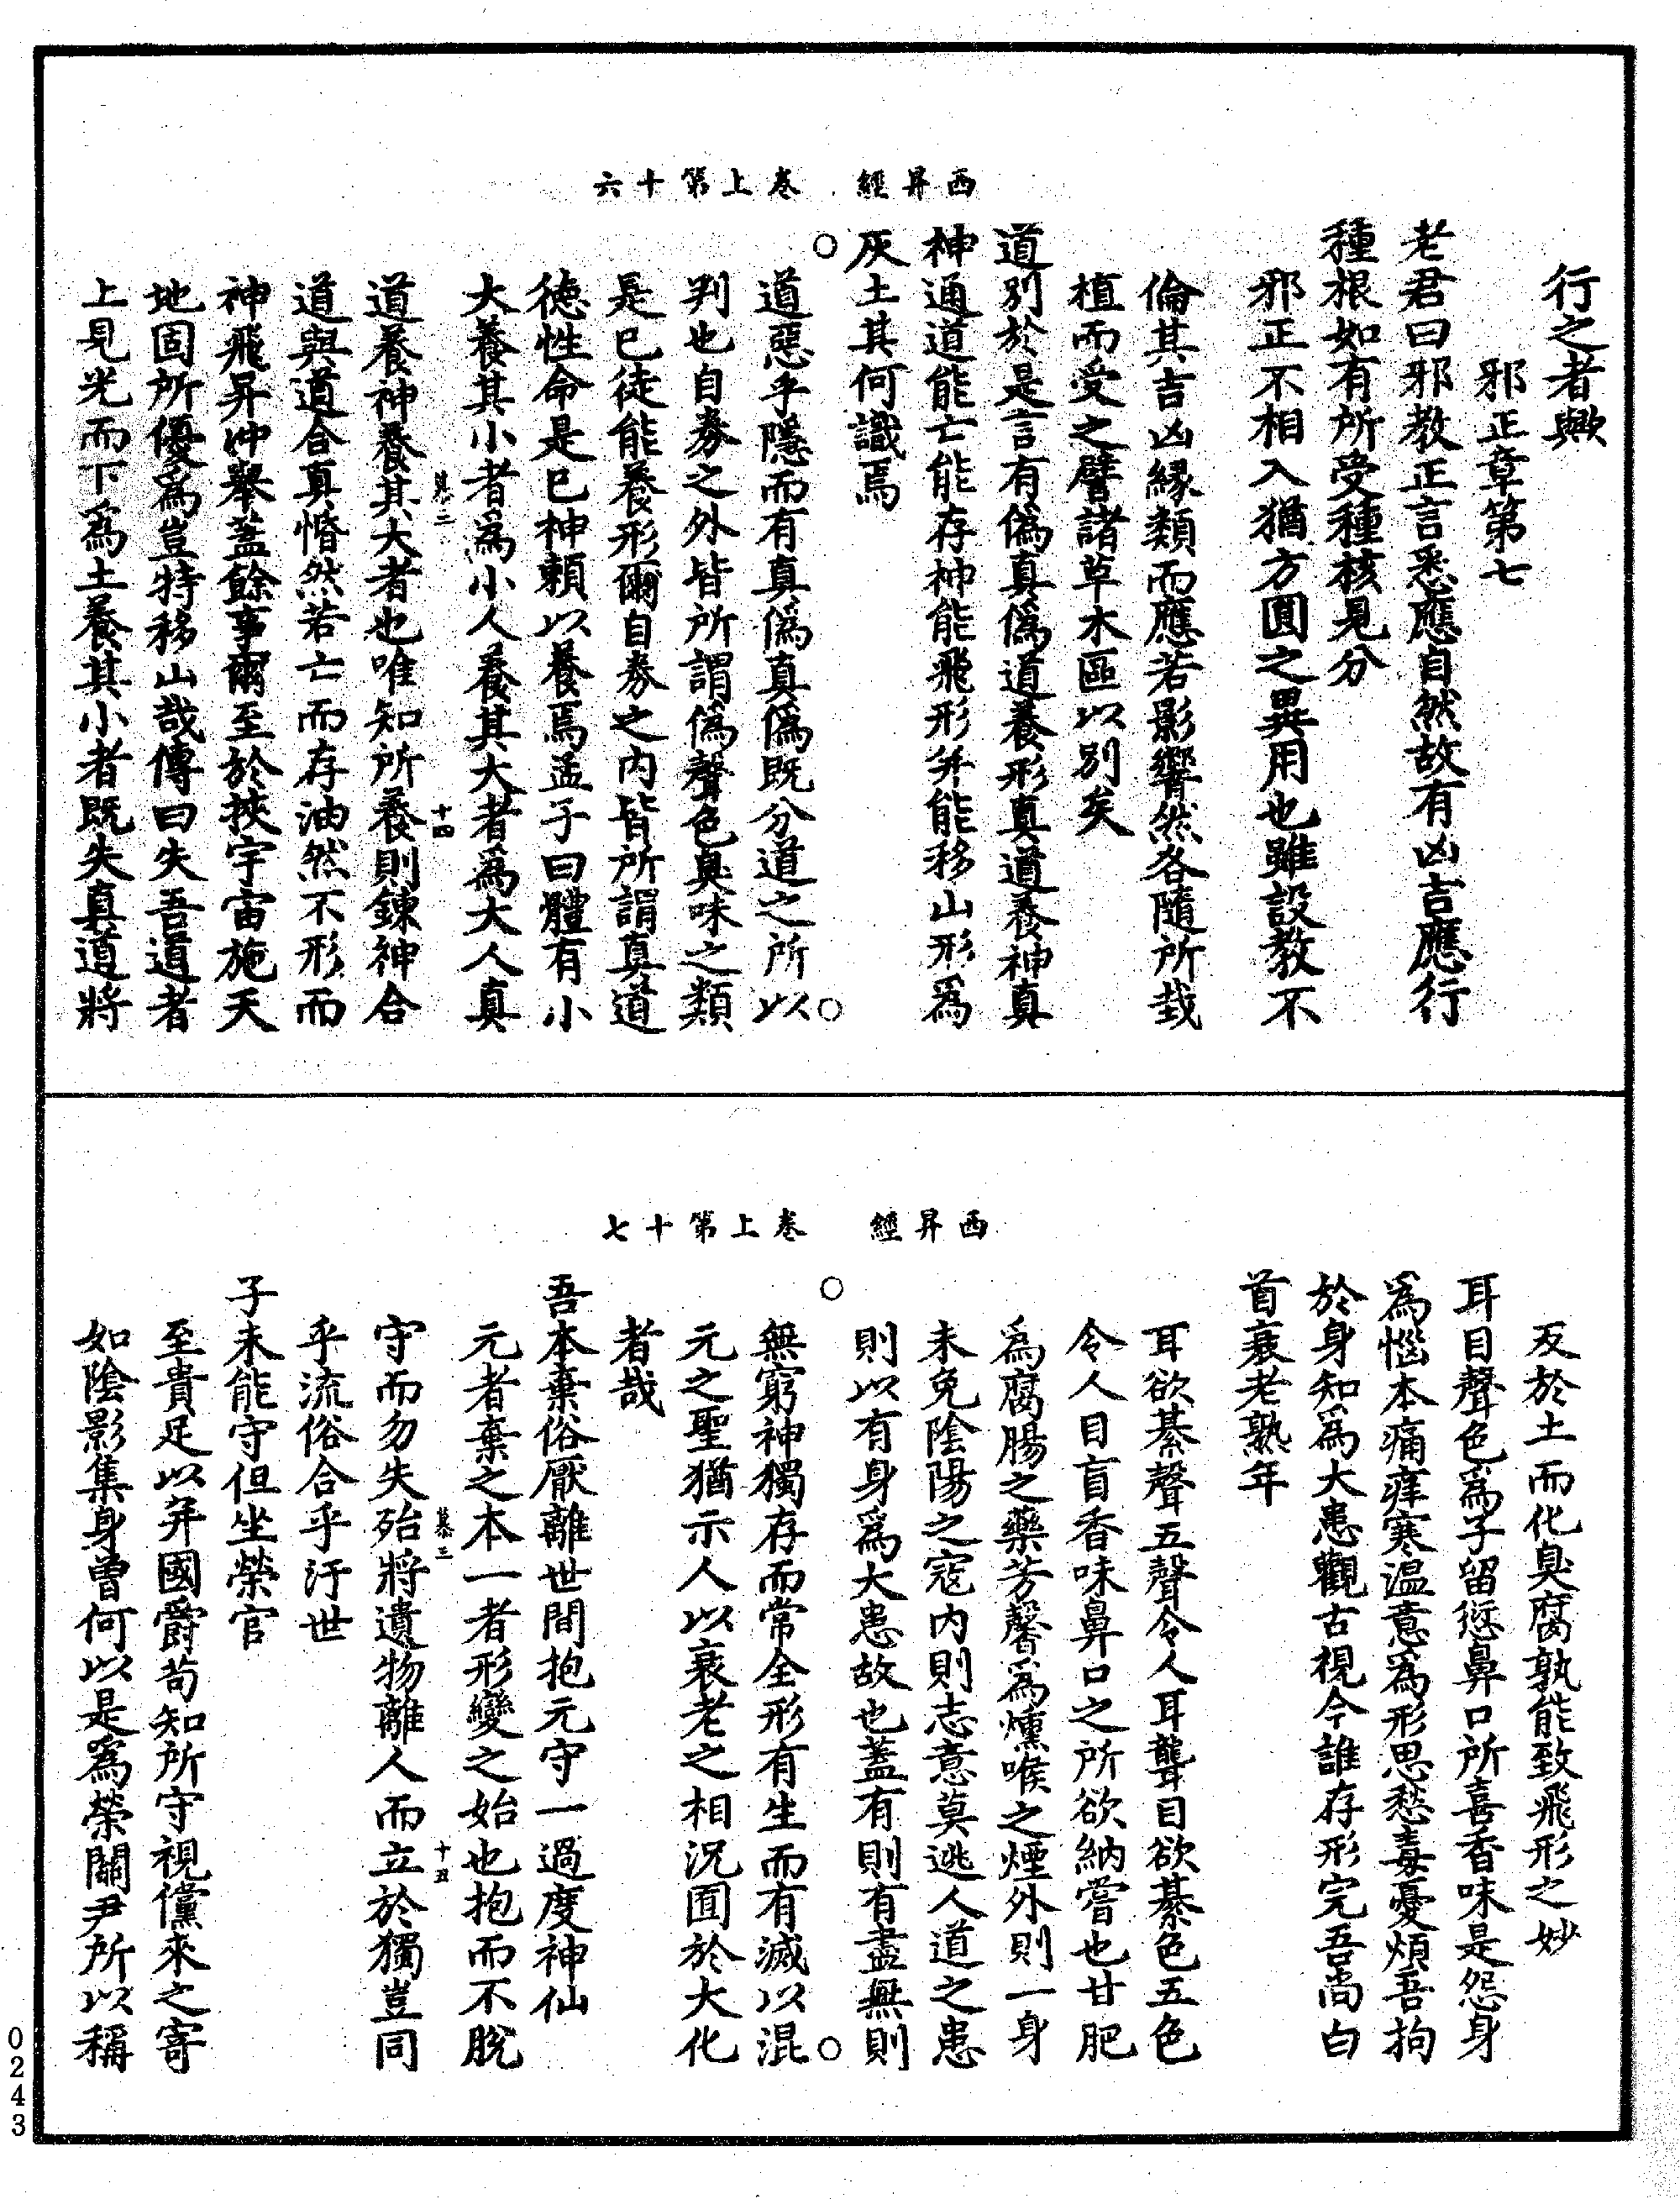 西昇經　卷上第十六
行之者歟
邪正章第七
老君曰邪教正言悉應自然故有凶吉應行
種根如有所受種核見分
邪正不相入猶方圓之異用也雖設教不
倫其吉凶緣類而應若影響然各隨所栽
植而受之譬諸草木區以別矣
道別於是言有偽真偽道養形真道養神真
神通道能亡能存神能飛形并能移山形爲
灰土其何識焉
○
道惡乎隱而有真偽真偽既分道之所以
○
判也自券之外皆所謂偽聲色臭味之類
是已徒能養形爾自券之內皆所謂真道
德性命是已神賴以養焉孟子曰體有小
大養其小者爲小人養其大者爲大人真
慕三　十四
道養神養其大者也唯知所養則鍊神合
道與道合真惛然若亡而存油然不形而
神飛昇沖舉蓋餘事爾至於挾宇宙施天
地固所優爲豈特移山哉傳曰失吾道者
上見光而下爲土養其小者既失真道將
西昇經　卷上第十七
反於土而化臭腐孰能致飛形之妙
耳目聲色爲子留愆鼻口所喜香味是怨身
爲惱本痛痒寒温意爲形思愁毒憂煩吾拘
於身知爲大患觀古視今誰存形完吾尚白
首衰老孰年
耳欲綦聲五聲令人耳聾目欲綦色五色
令人目盲香味鼻口之所欲納嘗也甘肥
爲腐腸之藥芳馨爲燻喉之煙外則一身
未免陰陽之寇內則志意莫逃人道之患
則以有身爲大患故也蓋有則有盡無則
○
無窮神獨存而常全形有生而有滅以混
○
元之聖猶示人以衰老之相況囿於大化
者哉
吾本棄俗厭離世間抱元守一過度神仙
元者棄之本一者形變之始也抱而不脫
慕三　十五
守而勿失殆將遺物離人而立於獨豈同
乎流俗合乎汙世
子未能守但坐榮官
至貴足以并國爵苟知所守視儻來之寄
如陰影集身曾何以是爲榮關尹所以稱
0243